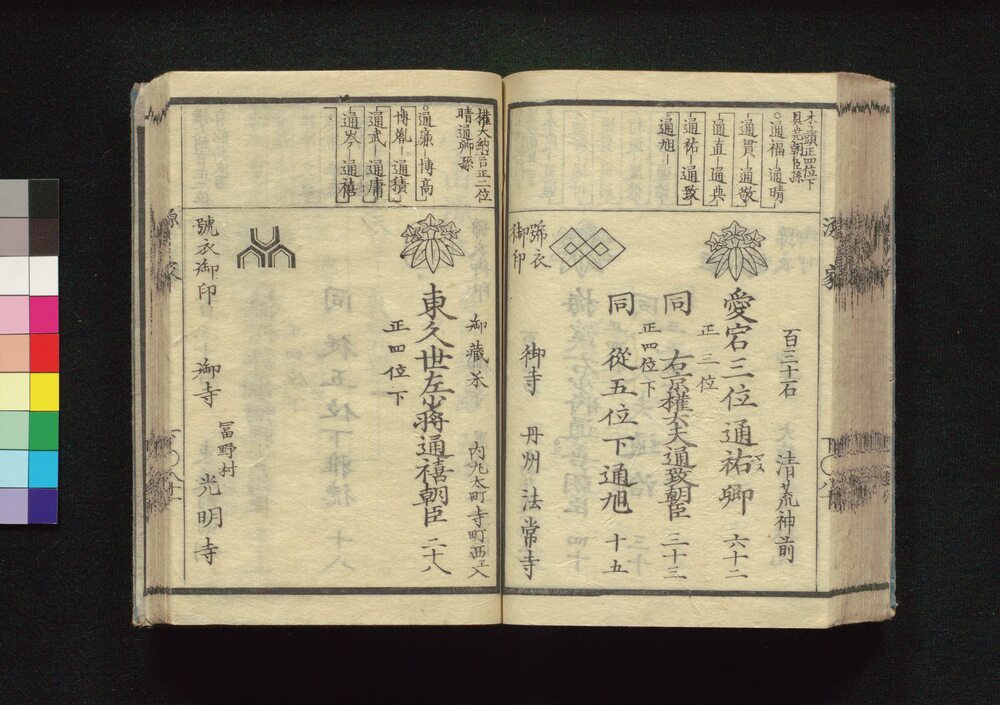 木工頭正四位下
具堯朝臣孫
通福 通晴
通貫 通敬
通直 通典
通祐 通致
通旭
百三十石 清荒神前
愛宕三位通祐卿 六十二
正三位
同 右京權大夫通致朝臣 三十三
正四位下
同 從五位下通旭 十五
蹄衣
御印
御寺 丹州 法常寺
權大納言正二位
晴通卿孫
通廉 博高
博胤 通積
通武 通庸
通岑 通禧
御藏米 内丸太町寺町西エ入
東久世左少將通禧朝臣 二十八
正四位下
號衣御印 御寺 冨野村 光明寺
源家